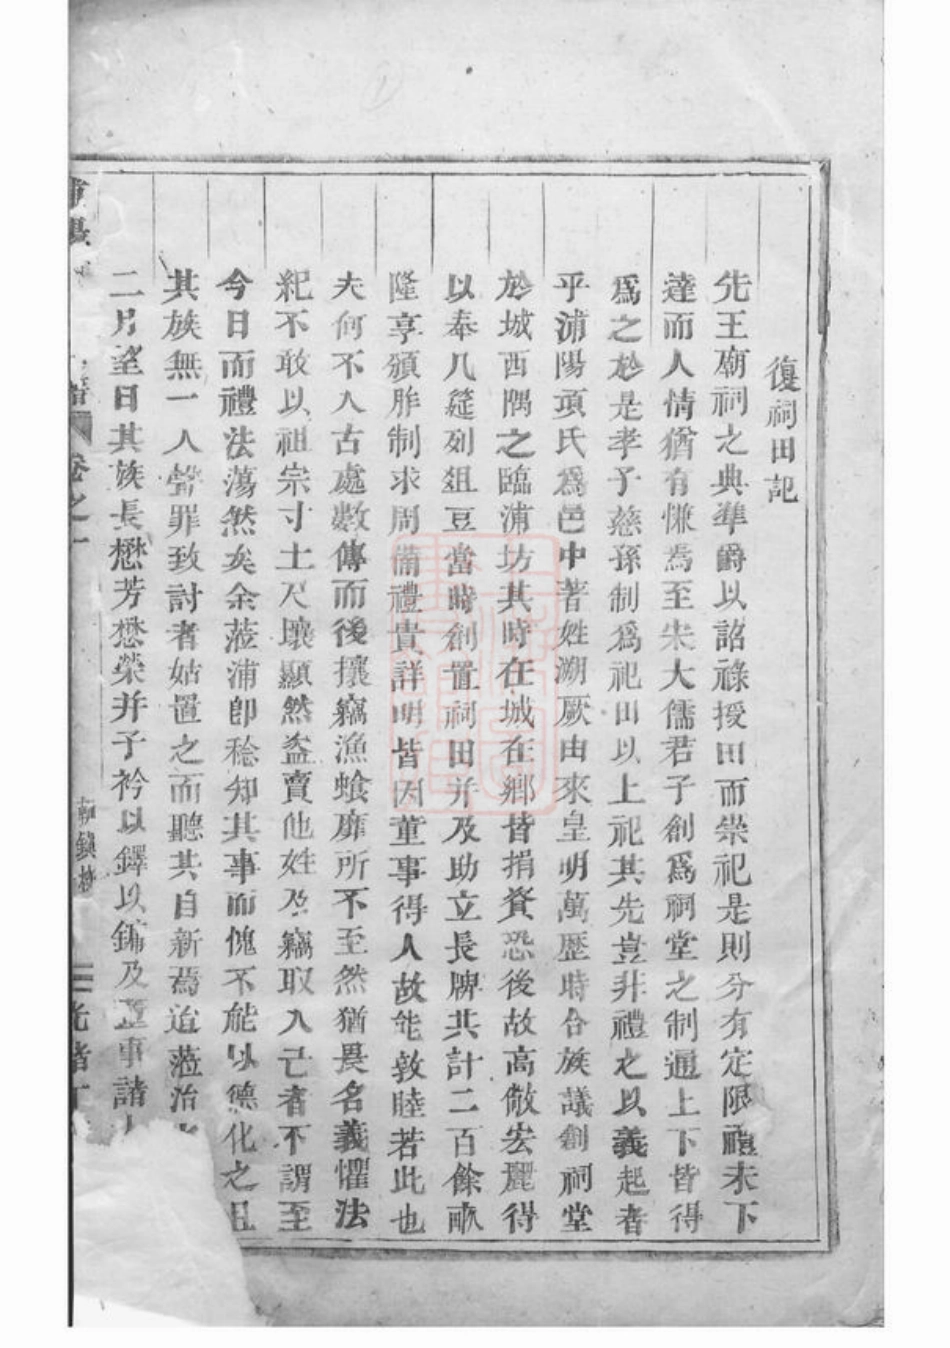 復祠田記
先王廟祠之典準爵以詔祿授田而崇祀是則分有定限禮未下
達而人情猶有慊焉至宋大儒君子創爲祠堂之制通上下皆得
爲之於是孝子慈孫制爲祀田以上祀其先豈非禮之以義起者
乎浦陽項氏爲邑中著姓溯厥由來皇明萬歷時合族議創祠堂
於城西隅之臨浦坊其時在城在鄉皆捐資恐後故高敞宏麗得
以奉几筵列俎豆當時創置祠田并及助立長牌共計二百餘畝
隆享頒胙制求周備禮貴詳明皆因董事得人故能敦睦若此也
夫何不人古處數傳而後攘竊漁蝕靡所不至然猶畏名義懼法
紀不敢以祖宗寸土尺壤顯然盜賣他姓及竊取入己者不謂至
今日而禮法蕩然矣余蒞浦卽稔知其事而愧不能以德化之且
其族無一人聲罪致討者姑置之而聽其自新焉迨蒞治
二月望日其族長懋芳懋榮并子衿以鐸以鏞及董事諸
卷之一